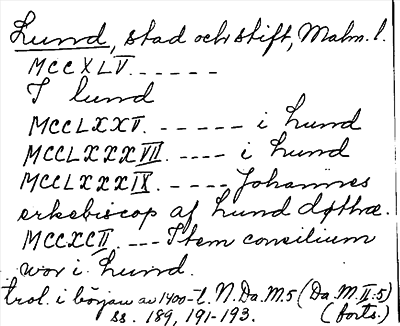 Lund, stad och stift, Malm. l.
MCCXLV. _ _ _ _ _ _
I lund
MCCLXXV. _ _ _ _ _ _ i Lund
MCCLXXXVII _ _ _ _ i Lund
MCCLXXXIX _ _ _ _ Johannes
erkebiscop af Lund døthæ.
MCCXCII _ _ _ Item consilium
wor i Lund.
trol. i början av 1400-t. N. Da. M. 5 (Da. M. II. 5)
ss. 189, 191-193. (forts.)